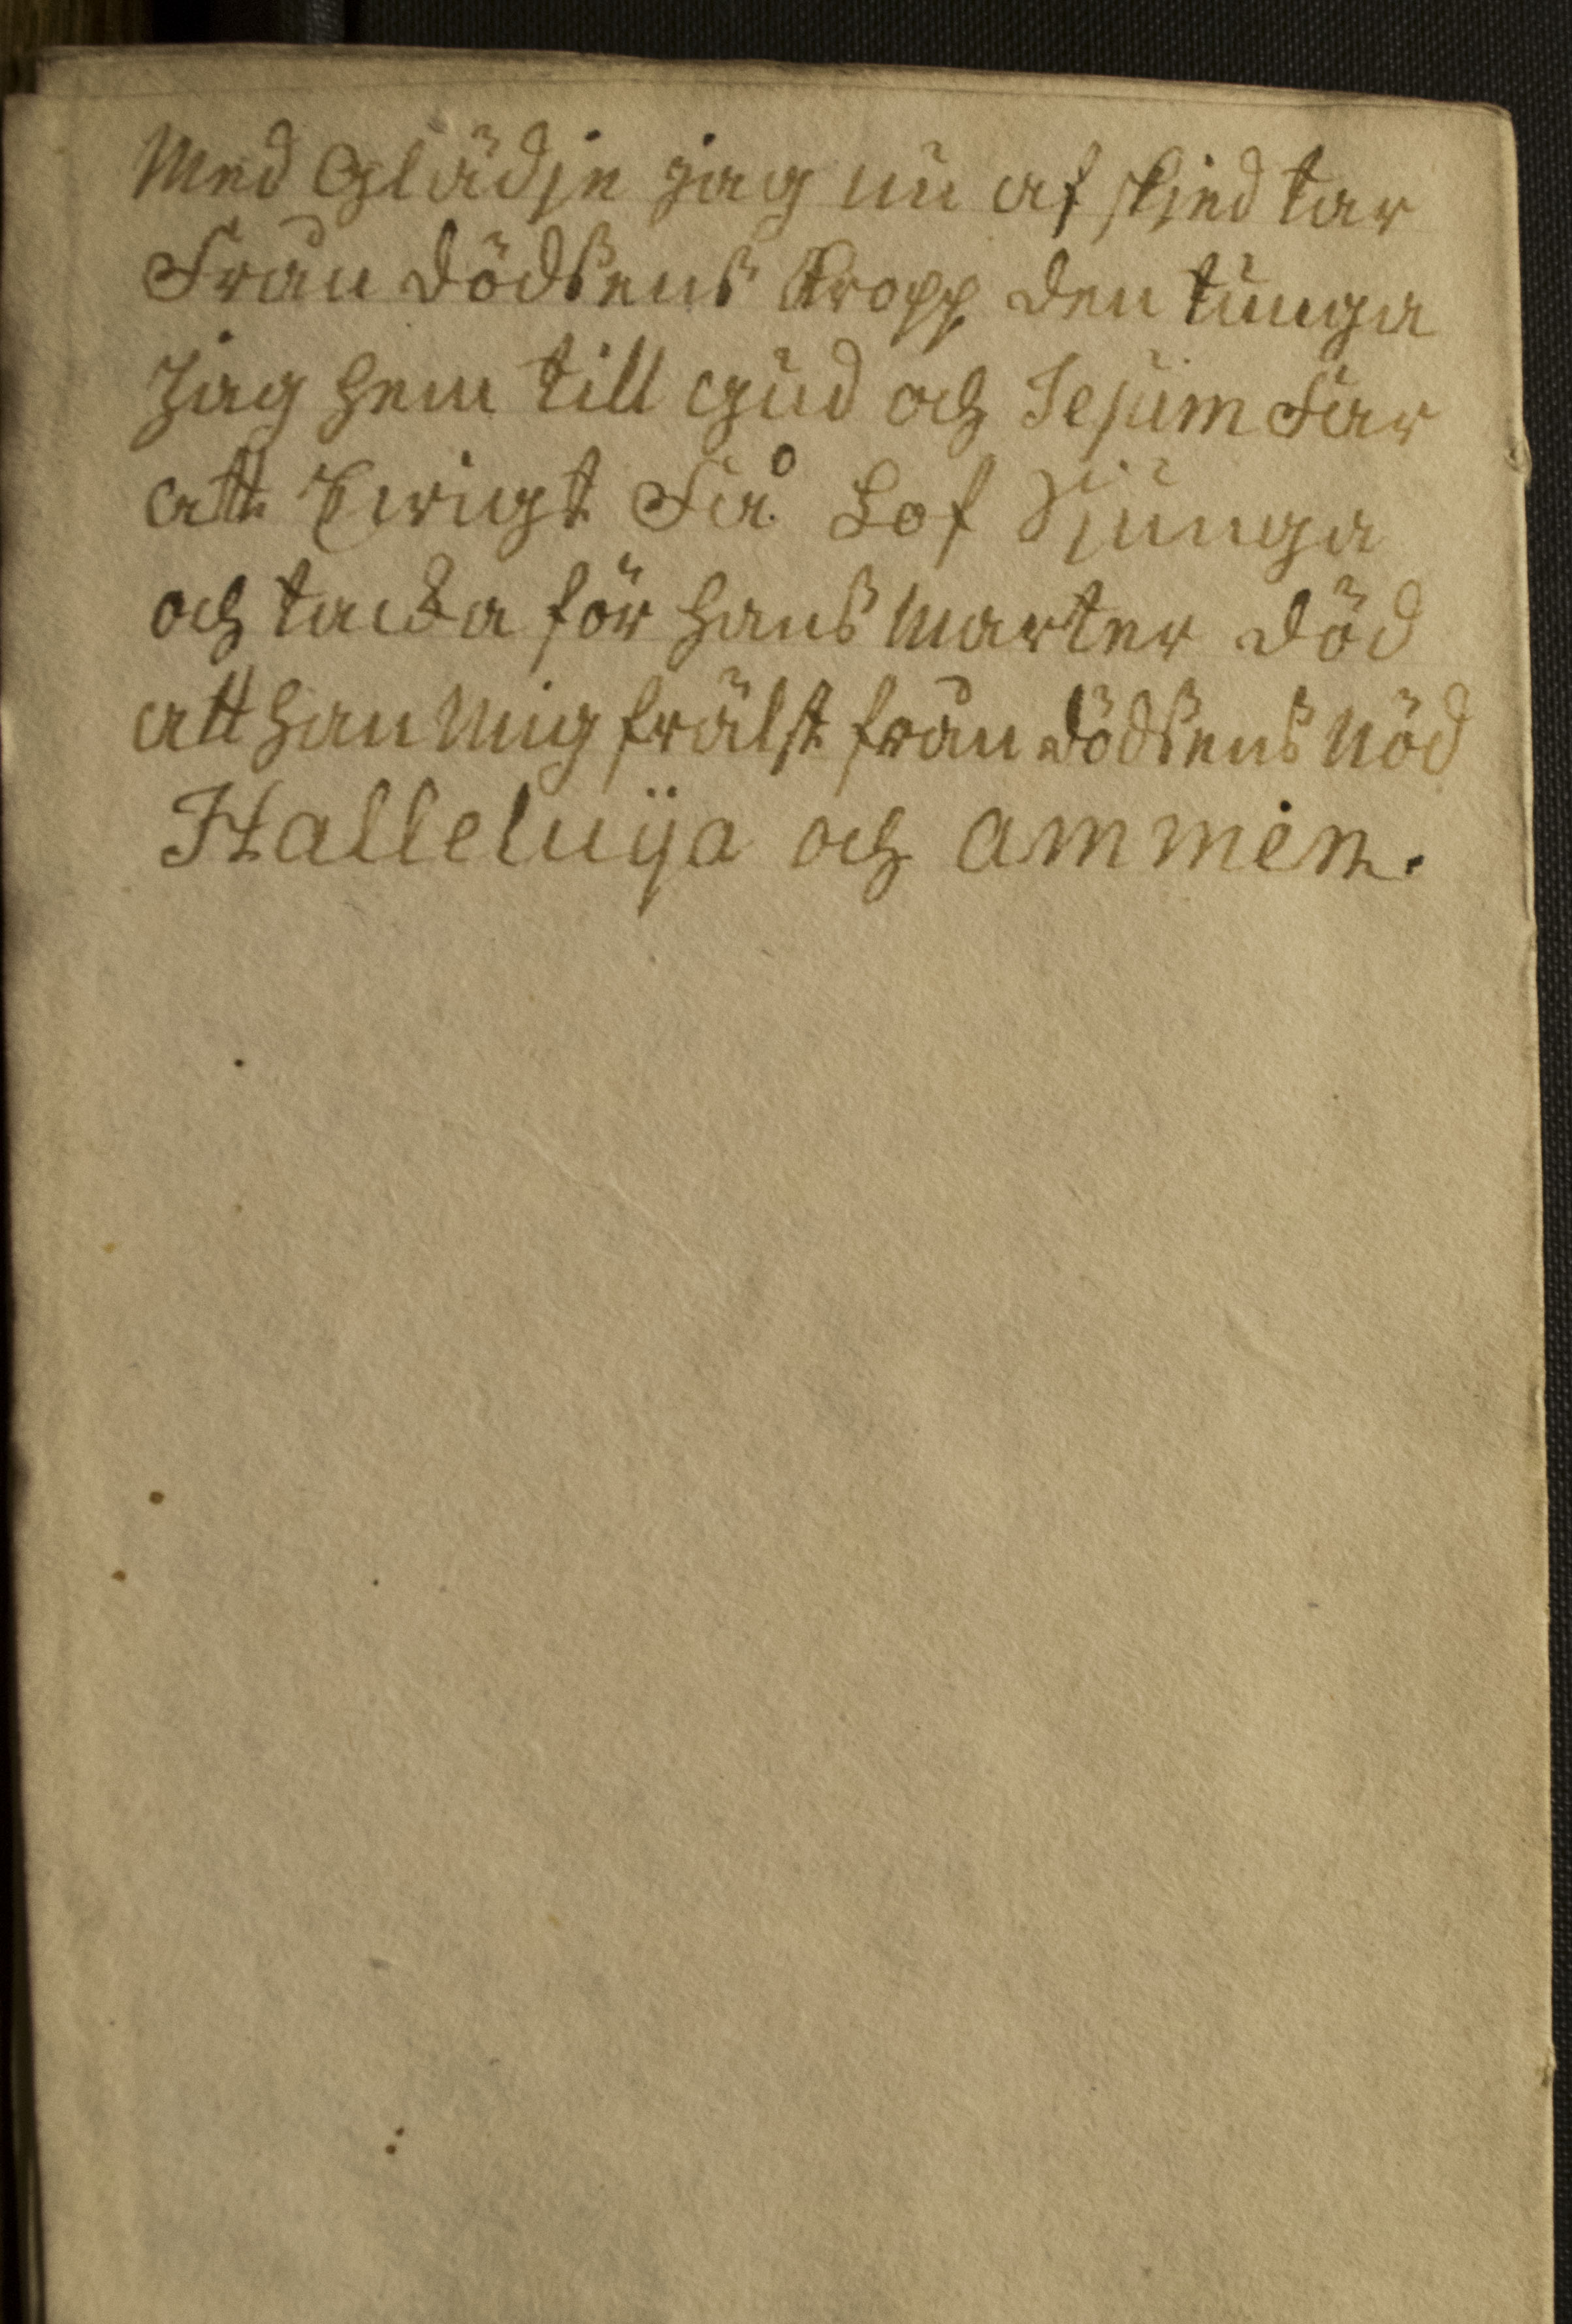 Med Glädje jag nu af skjed tar
Från dödsens Kropp den tunga
Jag hem till Gud och Jesum Far
att Ewigt Få Lof Sjunga
och tacka för hans Marter död
att han Mig frälst från dödsens Nöd
Halleluija och ammen.